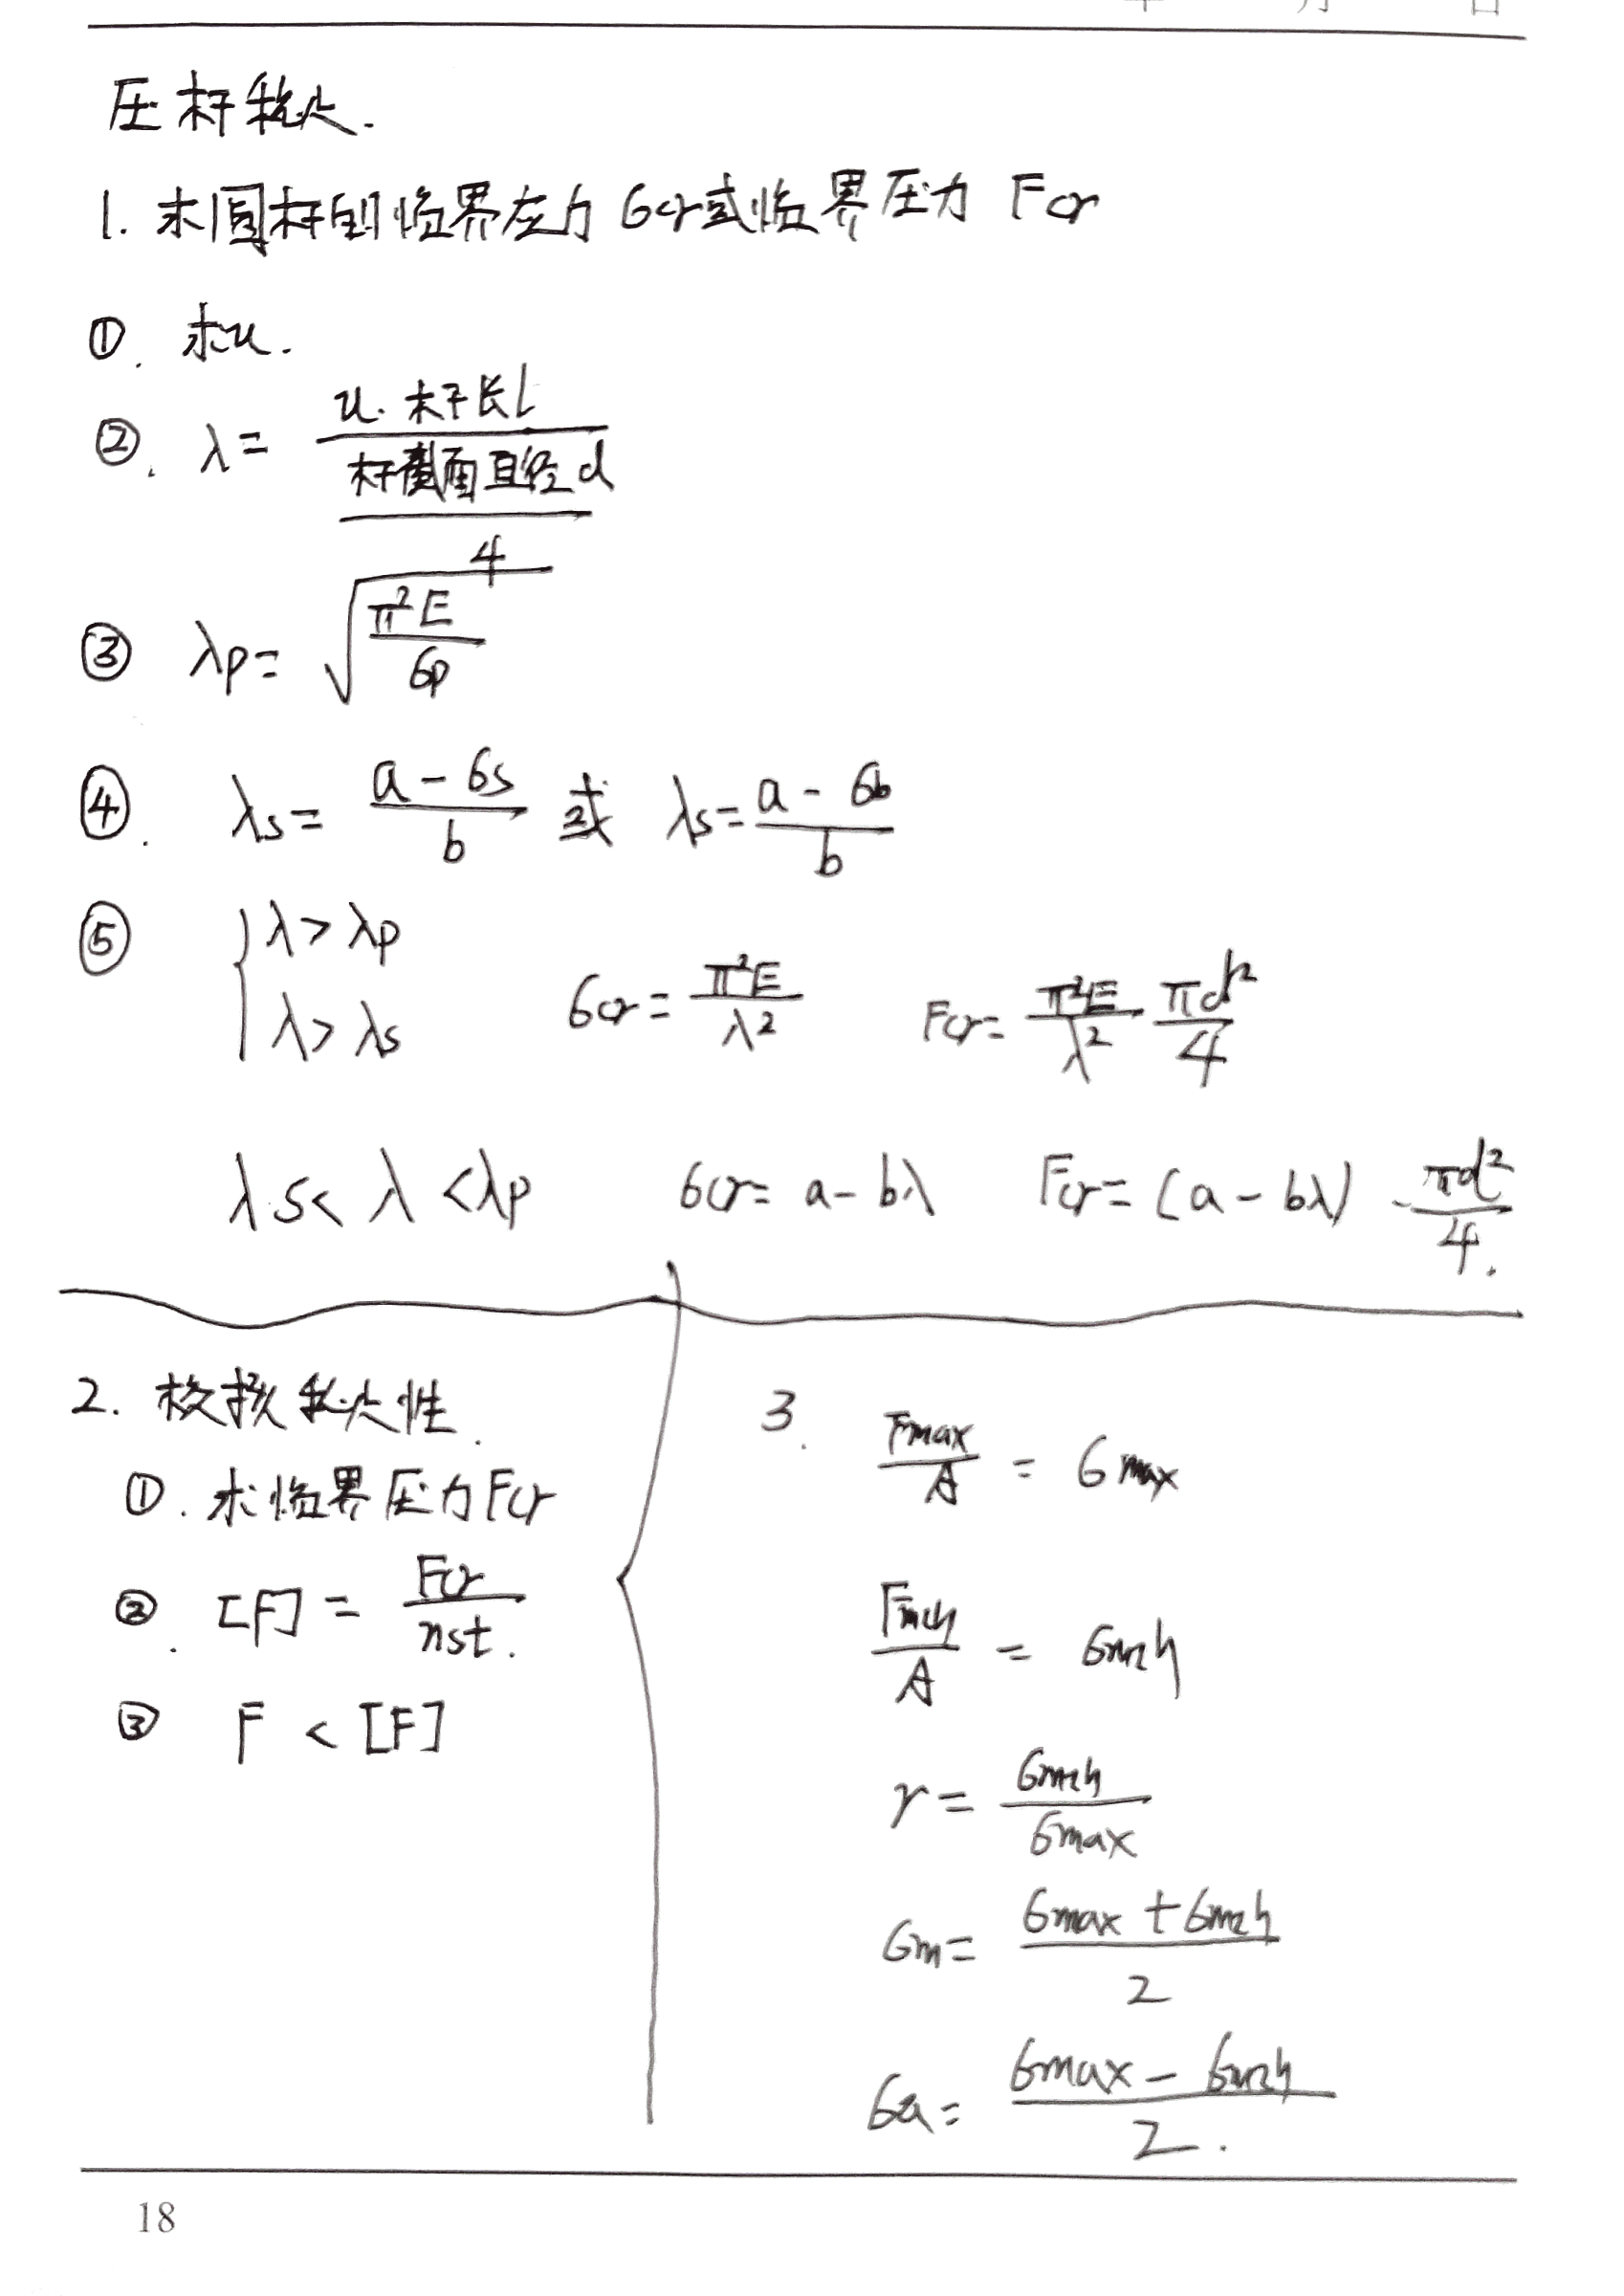 年 月 日
压杆稳定.
1. 求圆杆到临界应力 σcr或临界压力 Fcr
①. 求u.
②. λ = (u·杆长l) / (杆截面直径d / 4)
③ λp = √(π²E / σp)
④. λs = (a - σs) / b 或 λs = (a - σb) / b
⑤ { λ > λp
λ > λs σcr = π²E / λ² Fcr = π²E / λ² πd² / 4
λs < λ < λp σcr = a - bλ Fcr = (a - bλ) · πd² / 4.
2. 校核稳定性.
①. 求临界压力Fcr
②. [F] = Fcr / nst.
③ F < [F]
3. Fmax / A = σmax
Fmin / A = σmin
r = σmin / σmax
σm = (σmax + σmin) / 2
σa = (σmax - σmin) / 2.
18